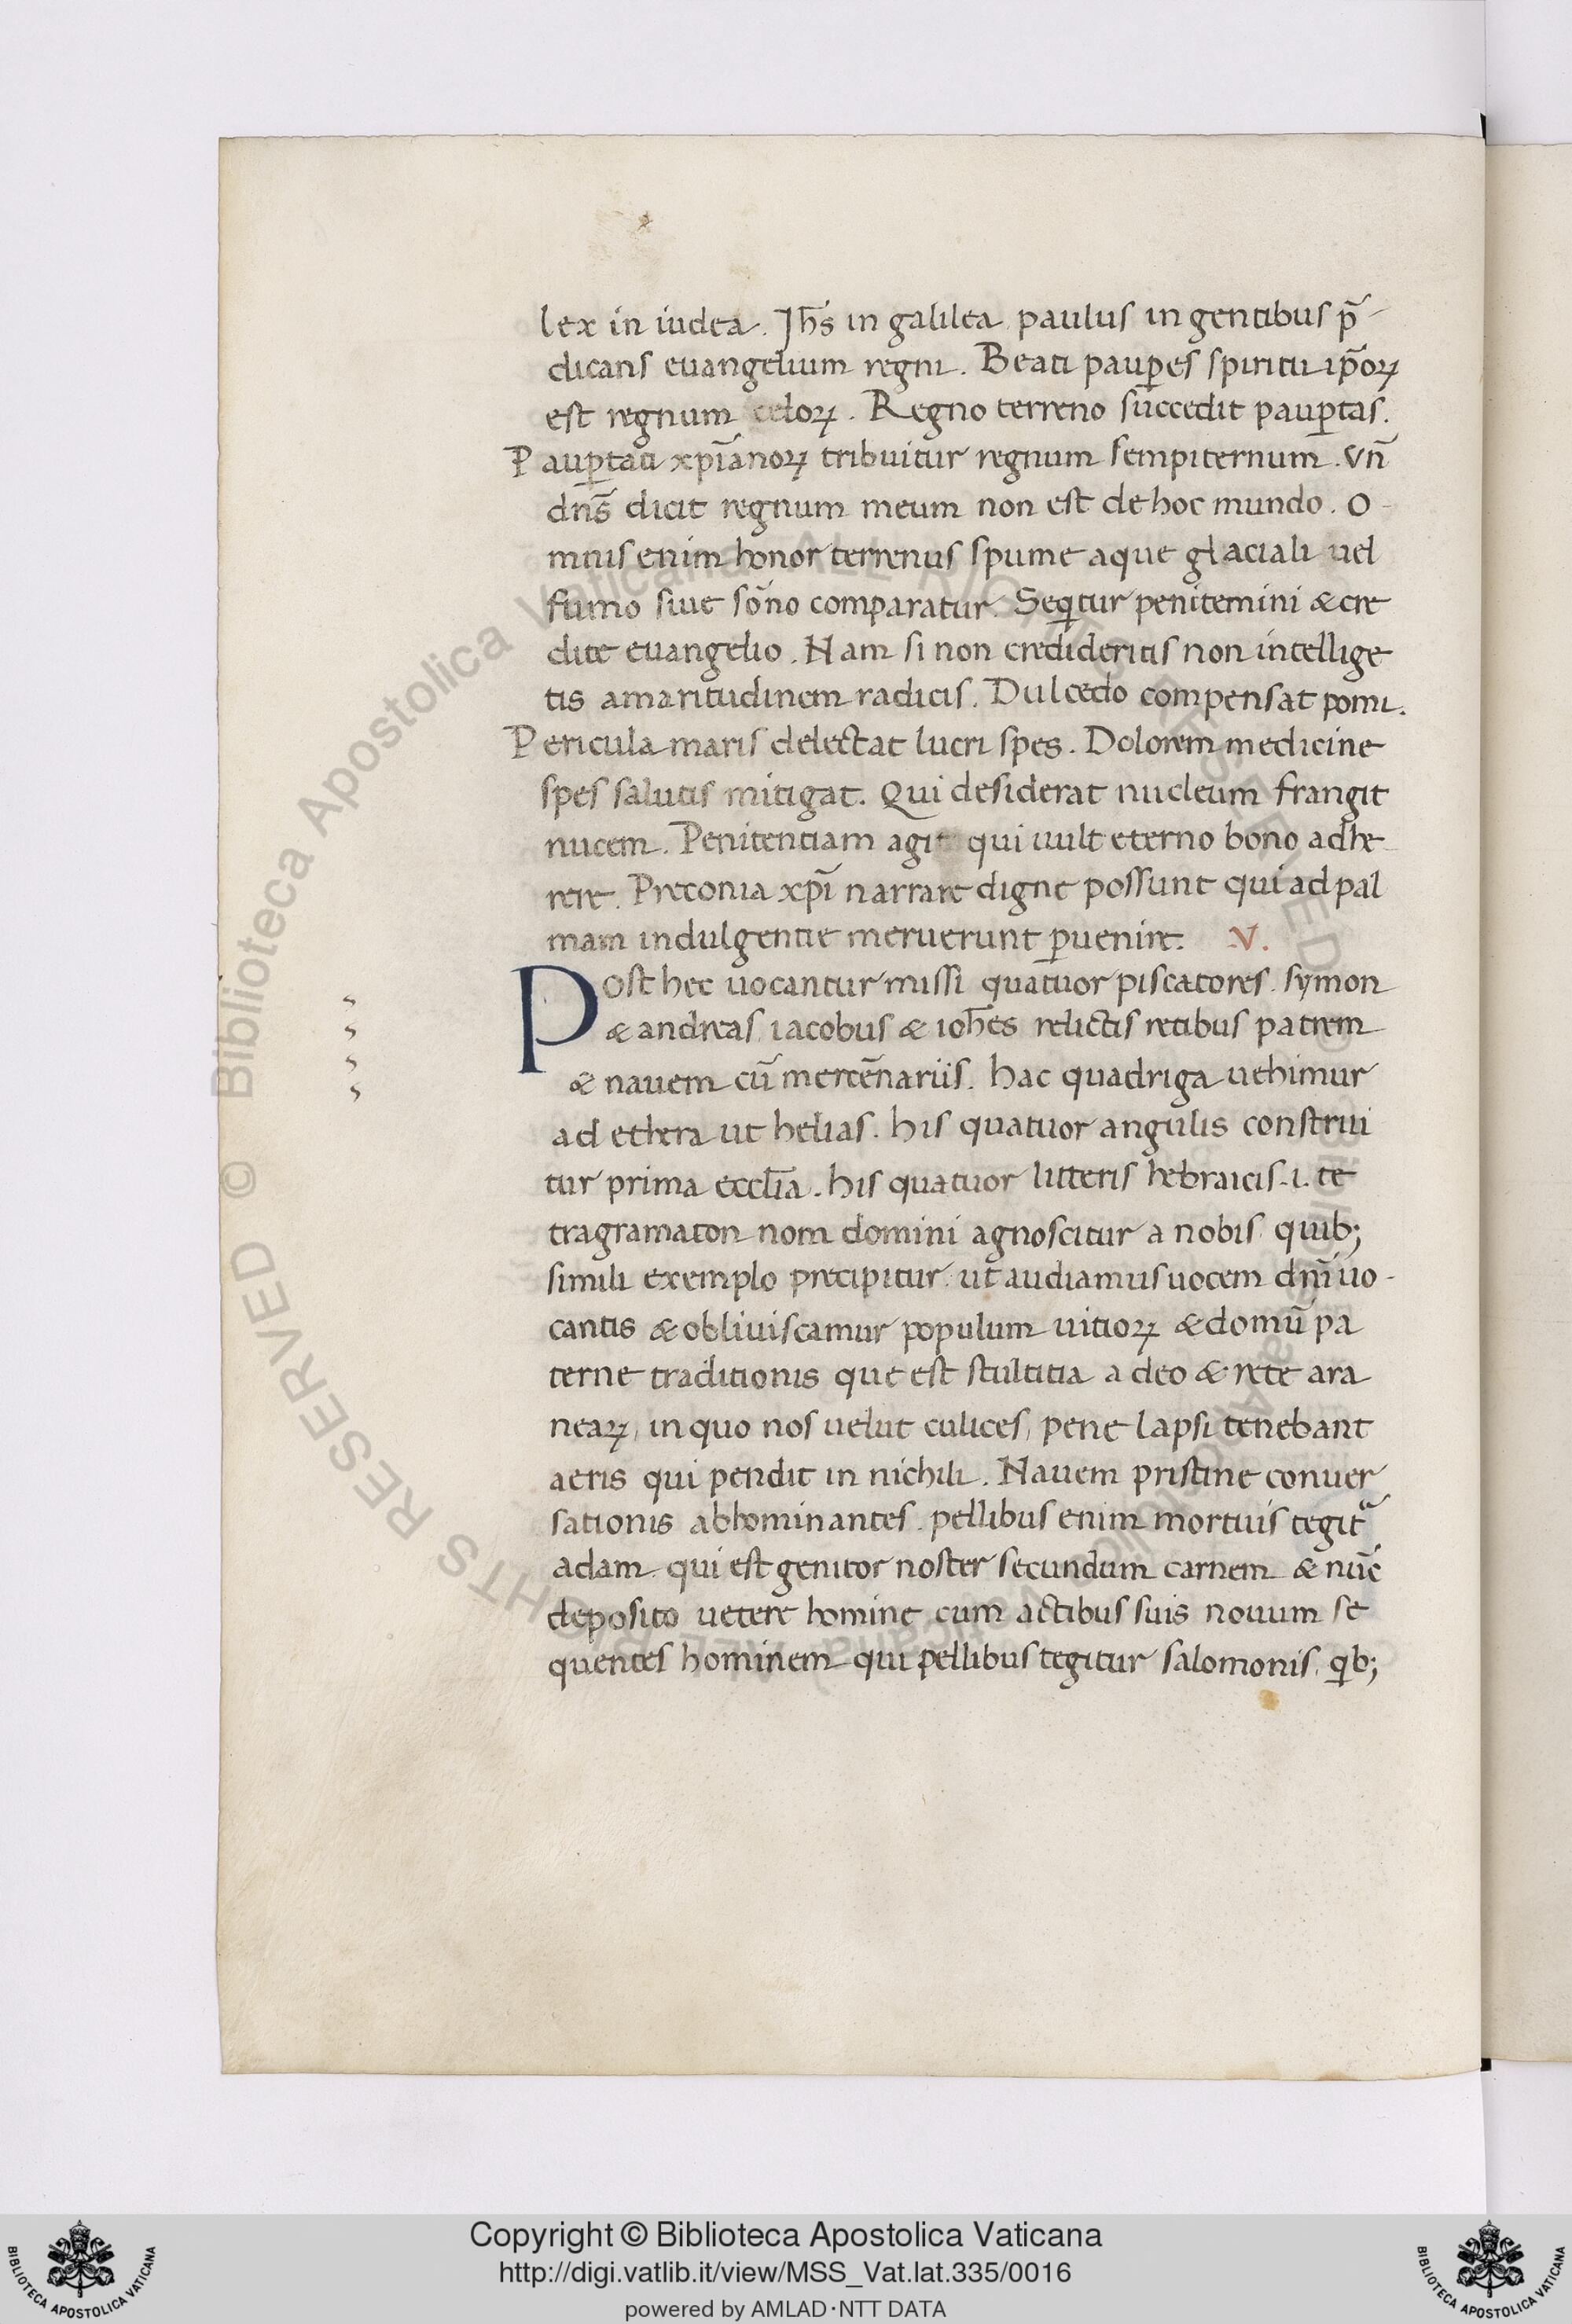 lex in iudea. Jħs in galilea paulus in gentibus p̄
dicans euangelium regni. Beati paup̱es spiritu ip̄oꝝ
est regnum celoꝝ. Regno terreno succedit paup̱tas.
Paup̱tati xp̄ianoꝝ tribuitur regnum sempiternum. vn̄
dn̄s dicit regnum meum non est de hoc mundo. o-
mnis enim honor terrenus spume aque glaciali uel
fumo siue sōno comparatur. Seqͥtur penitemini & cre
dite euangelio. Nam si non credideritis non intellige
tis amaritudinem radicis. Dulcedo compensat pomi.
Pericula maris delectat lucri spes. Dolorem medicine
spes salutis mitigat. Qui desiderat nucleum frangit
nucem. Penitentiam agit qui uult eterno bono adhe
rere. Preconia xp̄i narrare digne possunt qui ad pal
mam indulgentie meruerunt ꝑuenire. V.
Post hec uocantur missi quatuor piscatores. symon
& andreas iacobus & ioħes relictis retibus patrem
& nauem cū mercēnariis. hac quadriga uehimur
ad ethera ut helias. his quatuor angulis construi
tur prima ecclīa. his quatuor litteris hebraicis .i. te
tragramaton nom domini agnoscitur a nobis quib;
simili exemplo precipitur ut audiamus uocem dn̄i uo-
cantis & obliuiscamur populum uitioꝝ & domū pa
terne traditionis que est stultitia a deo & rete ara
neaꝝ, in quo nos uelut culices, pene lapsi tenebant
aeris qui pendit in nichili. Nauem pristine conuer
sationis abhominantes. pellibus enim mortuis tegitᵃ
adam qui est genitor noster secundum carnem & nūc
deposito uetere homine cum actibus suis nouum se
quentes hominem qui pellibus tegitur salomonis. qͥb;
© Biblioteca Apostolica Vaticana, ALL RIGHTS RESERVED
Copyright © Biblioteca Apostolica Vaticana
http://digi.vatlib.it/view/MSS_Vat.lat.335/0016
powered by AMLAD·NTT DATA
BIBLIOTECA APOSTOLICA VATICANA
BIBLIOTECA APOSTOLICA VATICANA